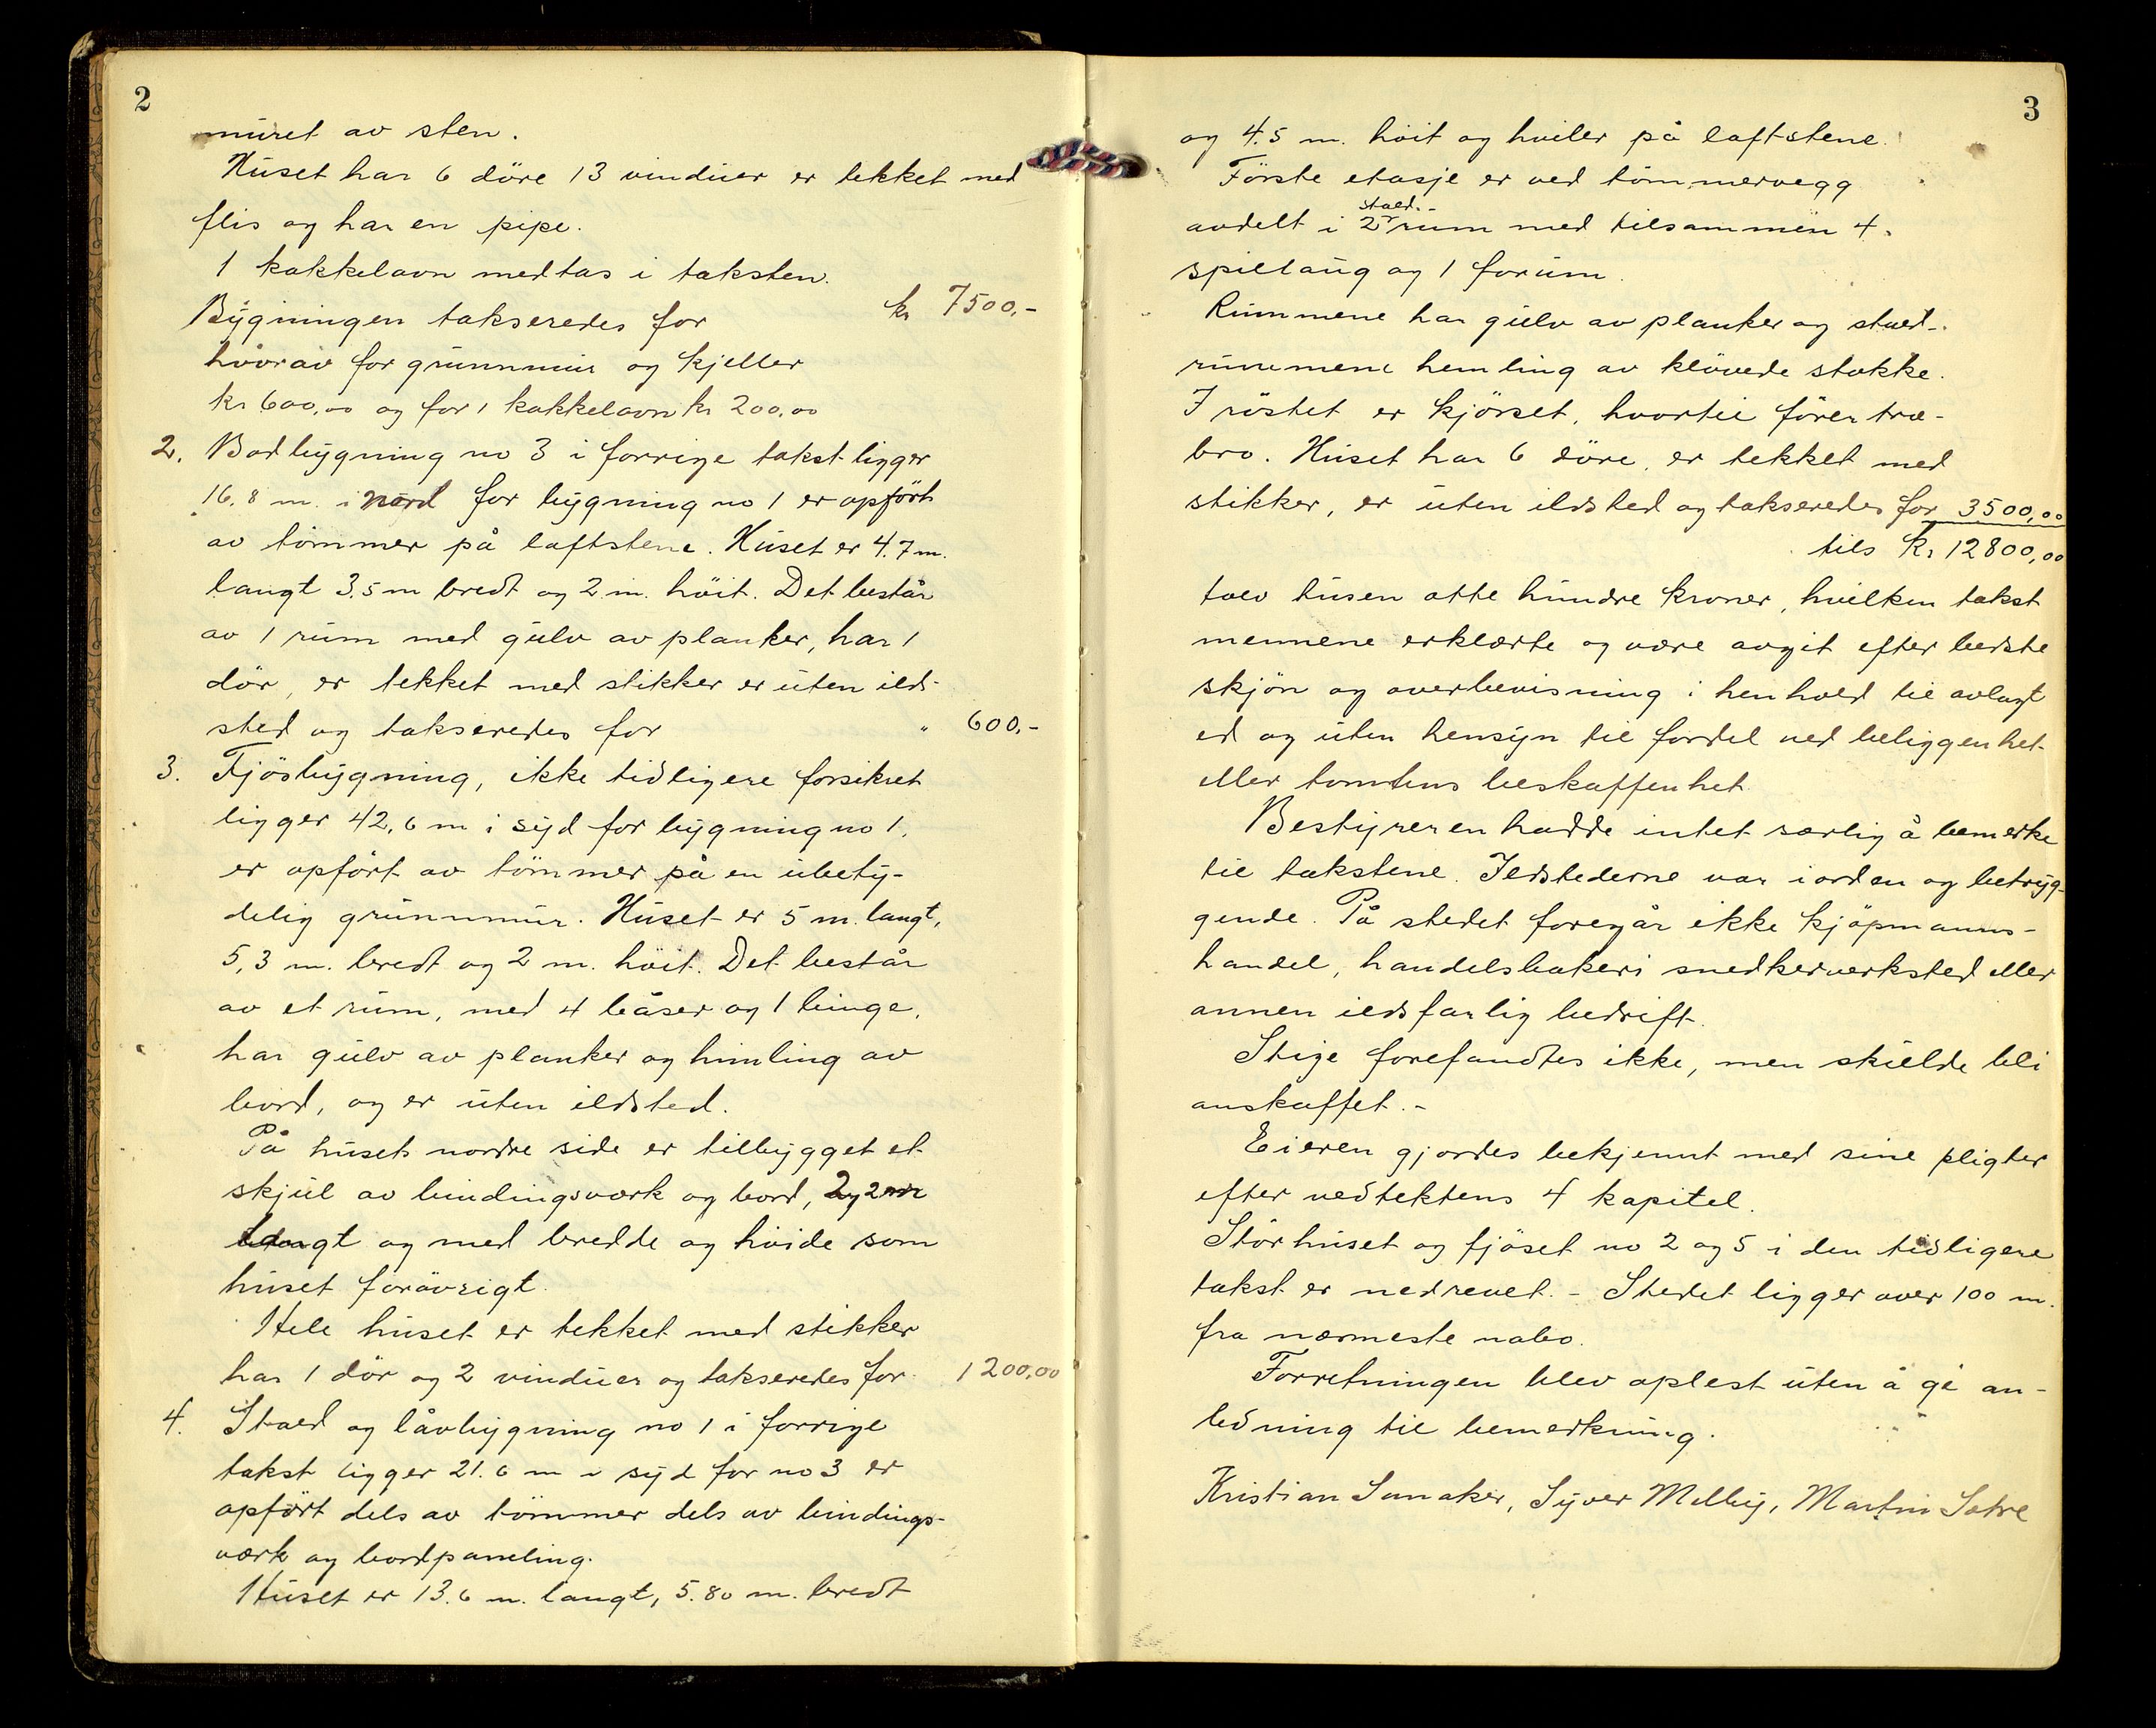 2
muret av sten.
Huset har 6 döre 13 vinduer er tekket med
flis og har en pipe.
1 kakkelavn medtas i taksten.
Bygningen takseredes for kr 7500,-
hvorav for grunnmur og kjeller
kr 600,00 og for 1 kakkelavn kr 200,00
2. Bodbygning no 3 i forrige takst ligger
16.8 m. i nord for bygning no 1 er opfört
av tömmer på laftstene. Huset er 4.7 m.
langt 3.5 m bredt og 2 m. höit. Det består
av 1 rum med gulv av planker, har 1
dör, er tekket med stikker er uten ild-
sted og takseredes for " 600,-
3. Fjösbygning, ikke tidligere forsikret
ligger 42,6 m i syd for bygning no 1,
er opfört av tömmer på en ubety-
delig grunnmur. Huset er 5 m. langt,
5,3 m. bredt og 2 m. höit. Det består
av et rum, med 4 båser og 1 binge,
har gulv av planker og himling av
bord, og er uten ildsted.
På husets nordre side er tilbygget et
skjul av bindingsverk og bord, 2,2 m
langt og med bredde og höide som
huset forövrigt.
Hele huset er tekket med stikker
har 1 dör og 2 vinduer og takseredes for 1200,00
4. Stald og låvbygning no 1 i forrige
takst ligger 21.6 m i syd for no 3 er
opfört dels av tömmer dels av bindings-
værk og bordpaneling.
Huset er 13.6 m. langt, 5.80 m. bredt
3
og 4.5 m. höit og hviler på laftstene.
Förste etasje er ved tömmervegg
stald-
avdelt i 2 rum med tilsammen 4
spiltaug og 1 forum.
Rummene har gulv av planker og stald-
rummene hemling av klövede stokke.
I röstet er kjörsel, hvortil förer træ-
bro. Huset har 6 döre, er tekket med
stikker, er uten ildsted og takseredes for 3500,00
tils kr 12800,00
tolv tusen otte hundre kroner, hvilken takst
mennene erklærte og være avgit efter bedste
skjön og overbevisning i henhold til avlagt
ed og uten hensyn til fordel ved beliggenhet
eller tomtens beskaffenhet.
Bestyreren hadde intet særlig å bemerke
til takstene. Ildstederne var i orden og betryg-
gende. På stedet foregår ikke kjöpmanns-
handel, handelsbakeri snedkerverksted eller
annen ildsfarlig bedrift.
Stige forefandtes ikke, men skulde bli
anskaffet.-
Eieren gjordes bekjennt med sine pligter
efter vedtektens 4 kapitel.
Störhuset og fjöset no 2 og 5 i den tidligere
takst er nedrevet. - Stedet ligger over 100 m.
fra nærmeste nabo.
Forretningen blev oplest uten å gi an-
ledning til bemerkning.
Kristian Sanaker, Syver Melby, Martin Sætre